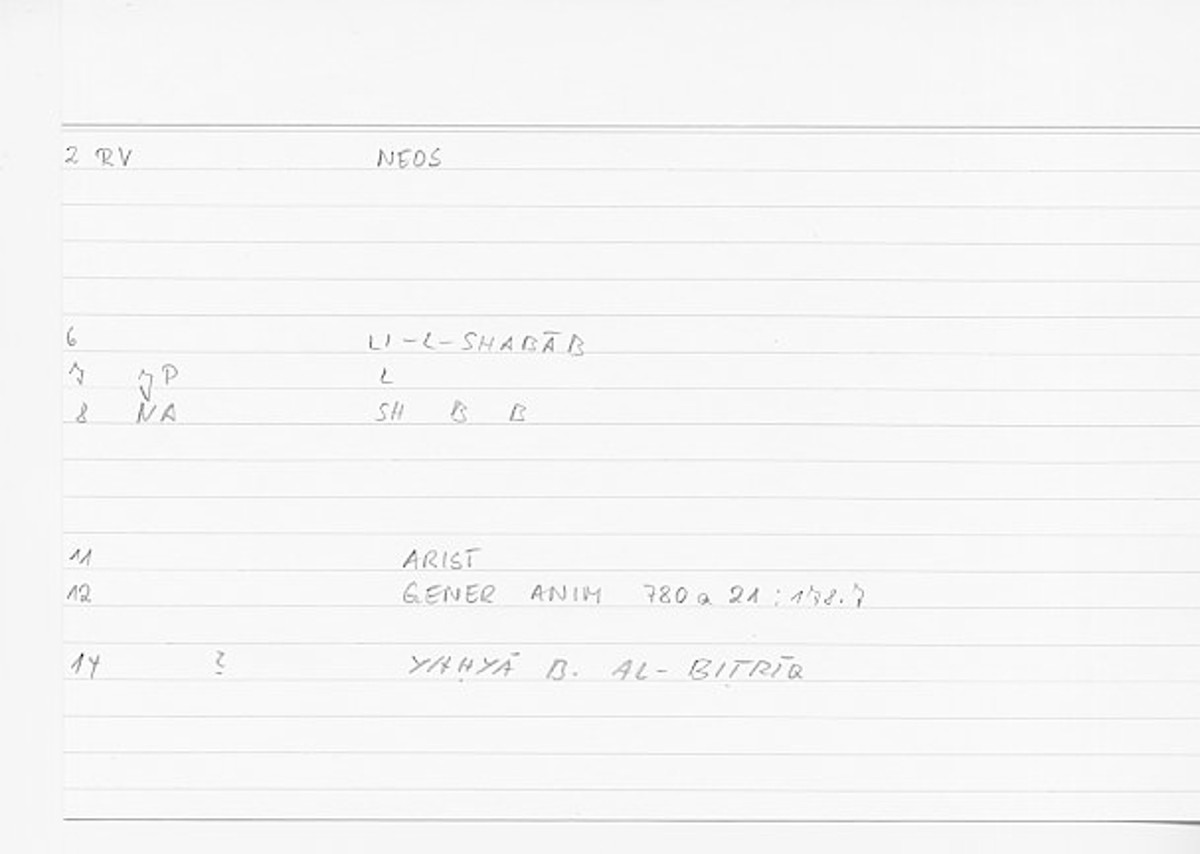 2 RV NEOS
6 LI-L-SHABĀB
7 JP L
8 NA SH B B
11 ARIST
12 GENER ANIM 780 a 21 : 178.7
14 ? YAḤYĀ B. AL-BIṬRĪQ